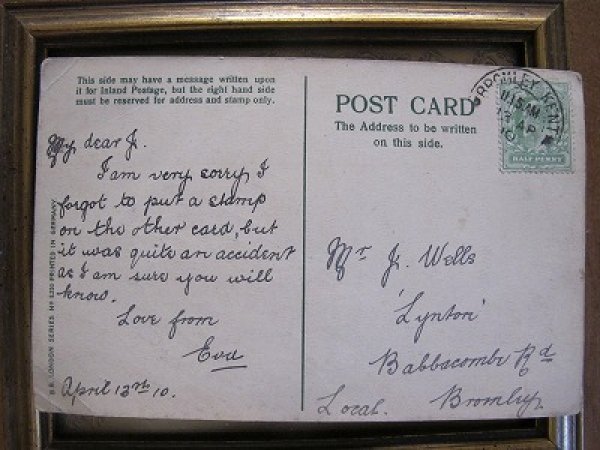 This side may have a message written upon
it for Inland Postage, but the right hand side
must be reserved for address and stamp only.
My dear Jr.
I am very sorry I
forgot to put a stamp
on the other card, but
it was quite an accident
as I am sure you will
know.
Love from
Eva
April 13th 10.
B.B. LONDON SERIES No PRINTED IN GERMANY
POST CARD
The Address to be written
on this side.
BROMLEY KENT
11 15 AM
AP
10
HALF PENNY
Mr Jr. Wells
'Lynton'
Babbacombe Rd
Local. Bromley